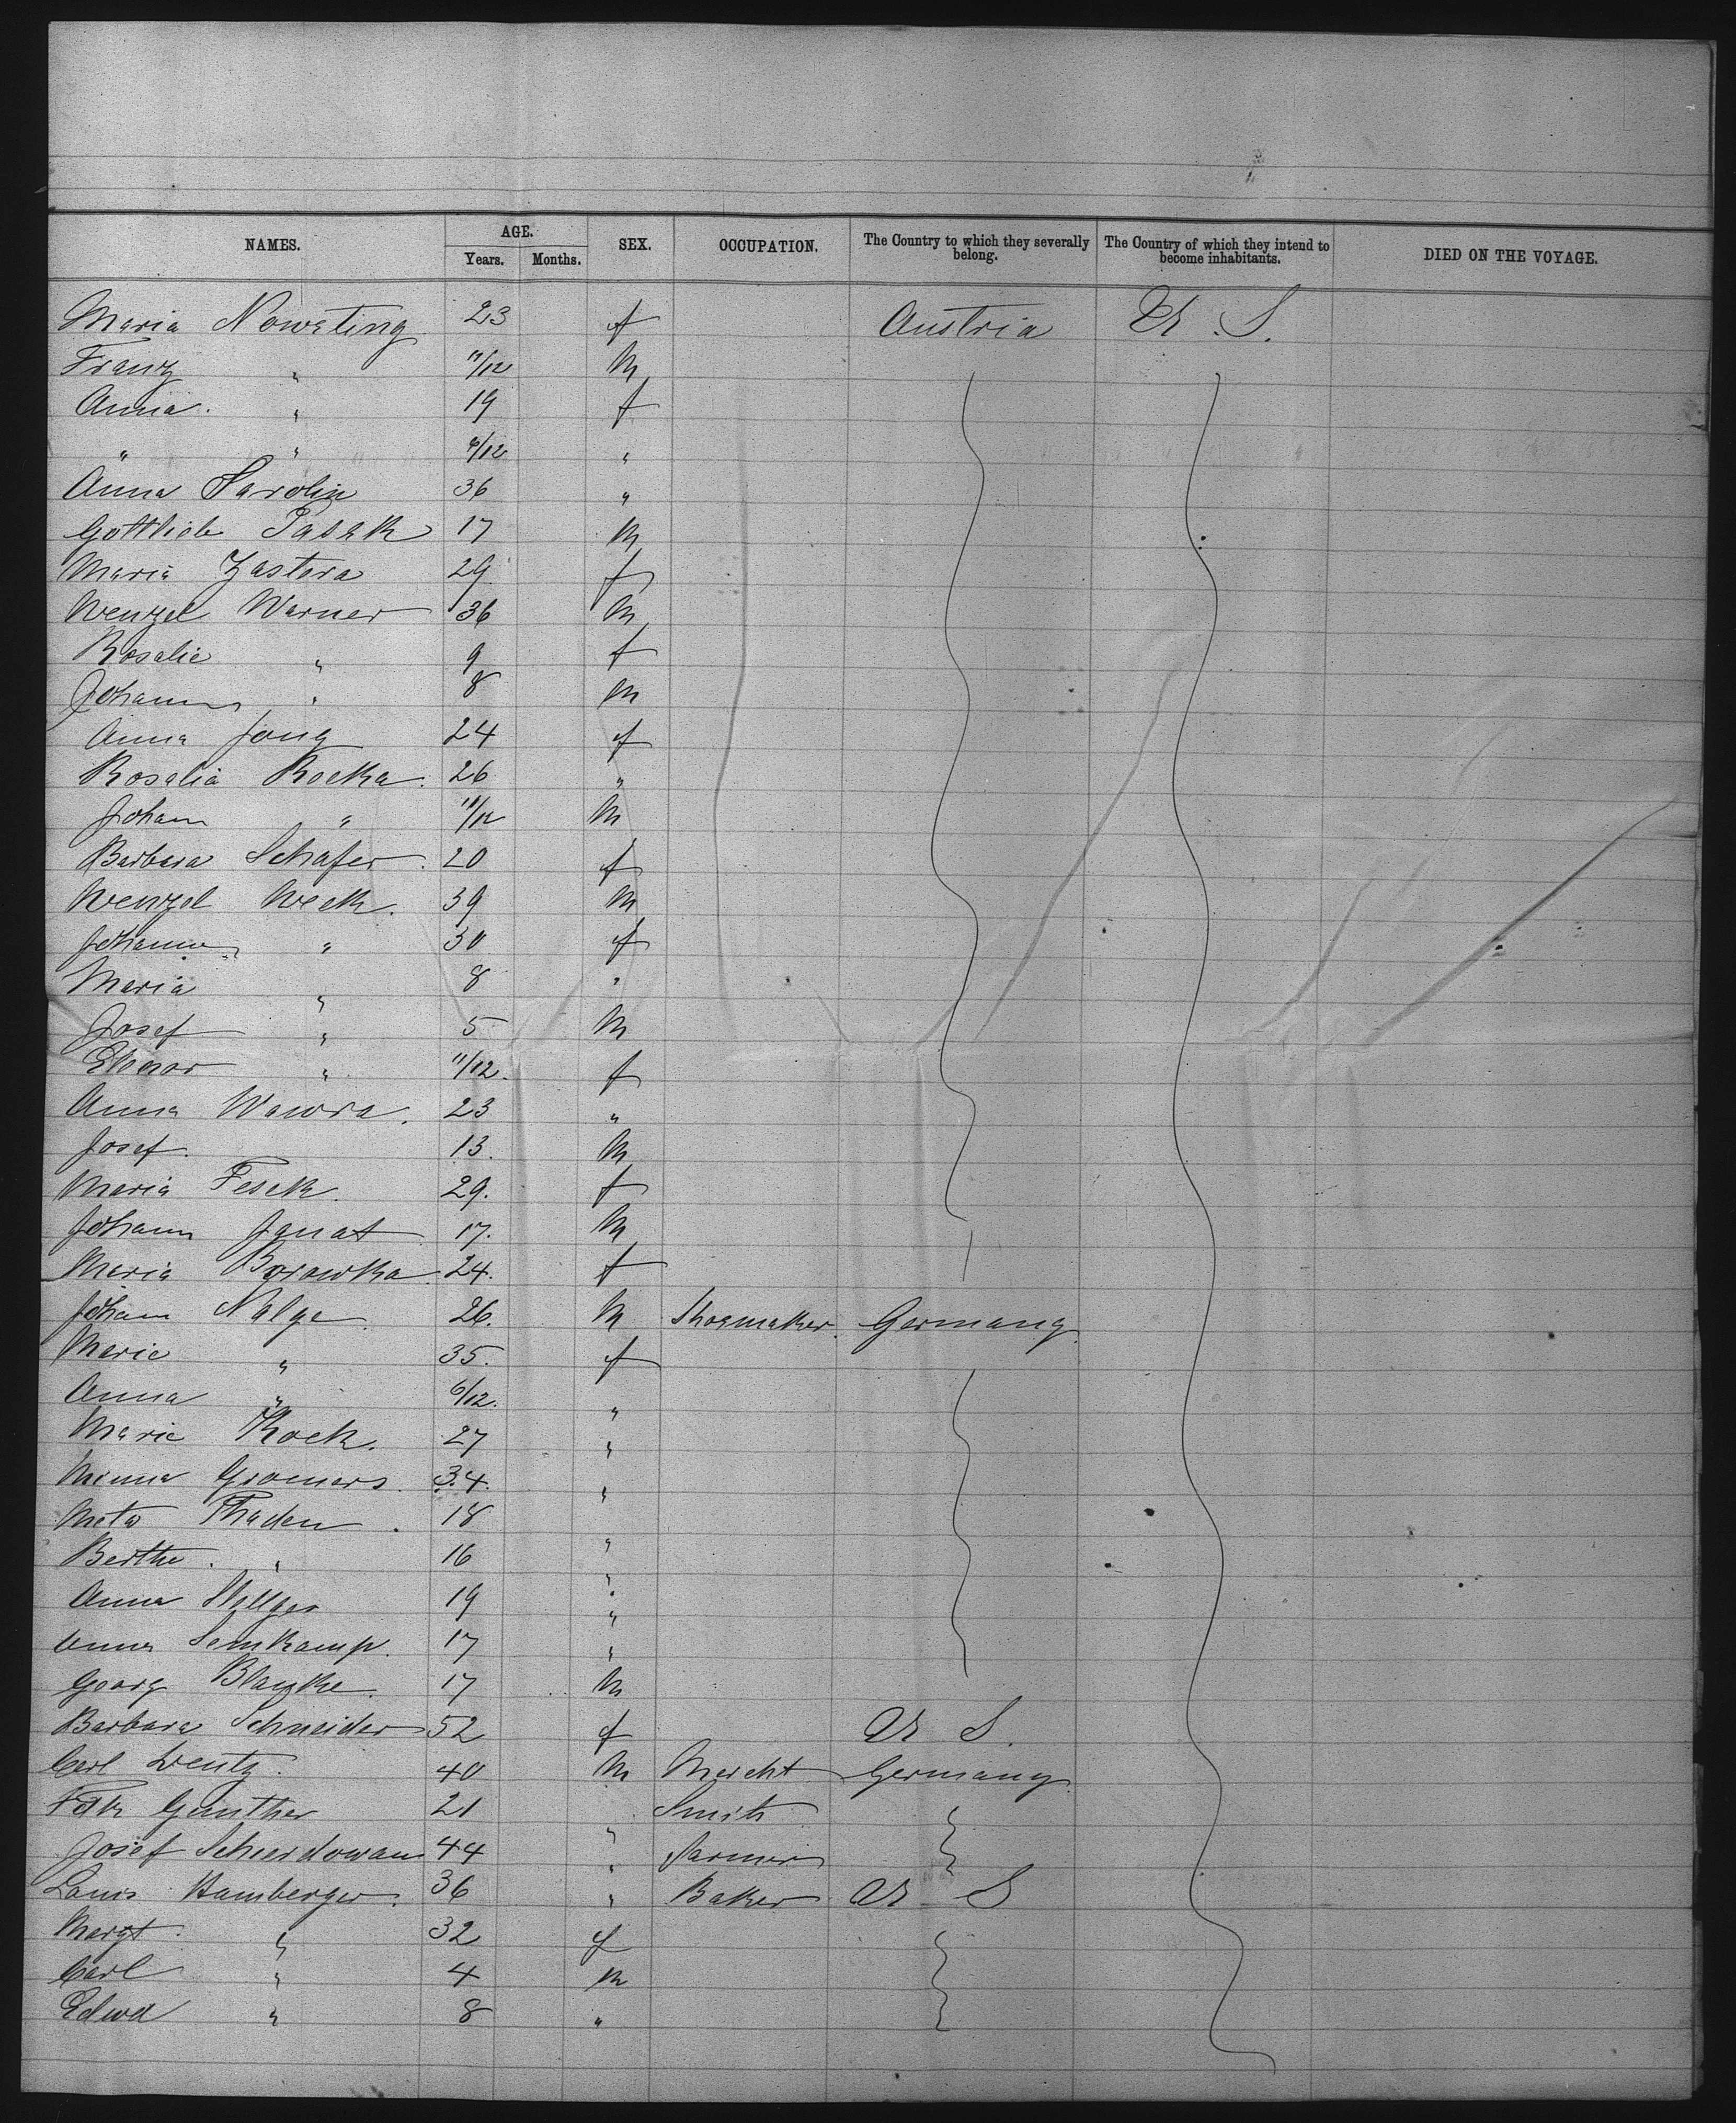 NAMES. AGE. SEX. OCCUPATION. The Country to which they severally belong. The Country of which they intend to become inhabitants. DIED ON THE VOYAGE.
Years. Months.
Maria Nowating 23 f Austria U. S.
Franz " 11/12 M
Anna. " 19 f
" " 9/12 "
Anna Sarolin 36 "
Gottlieb Pasak 17 M
Maria Zastera 29 f
Wenzel Warner 36 M
Rosalie " 9 f
Johann " 8 M
Anna Jong 24 f
Rosalia Rocka. 26 "
Joham " 11/12 M
Barbara Schafer. 20 f
Wenzel Week. 39 M
Johanna " 30 f
Maria " 8 "
Josef " 5 M
Elenor " 11/12. f
Anna Wawra. 23 "
Josef. 13. M
Maria Fesek. 29. f
Johann Janat 17. M
Maria Borowka 24. f
Joham Nalge 26. M Shoemaker. Germany.
Marie " 35. f
Anna " 6/12. "
Marie Kock. 27 "
Minna Gromers. 34. "
Meta Thaden. 18 "
Bertha. " 16 "
Anna 19 "
Anna Semkamp. 17 "
Georg Blanke. 17 M
Barbara Schneider 52 f U S.
Carl Wentz. 40 M Mercht Germany.
Fdk Gunther 21 " Smith
Josef 44 " Farmer
Louis Hamberger. 36 " Baker U S
Margt. " 32 f
Carl " 4 M
Edwd " 8 "